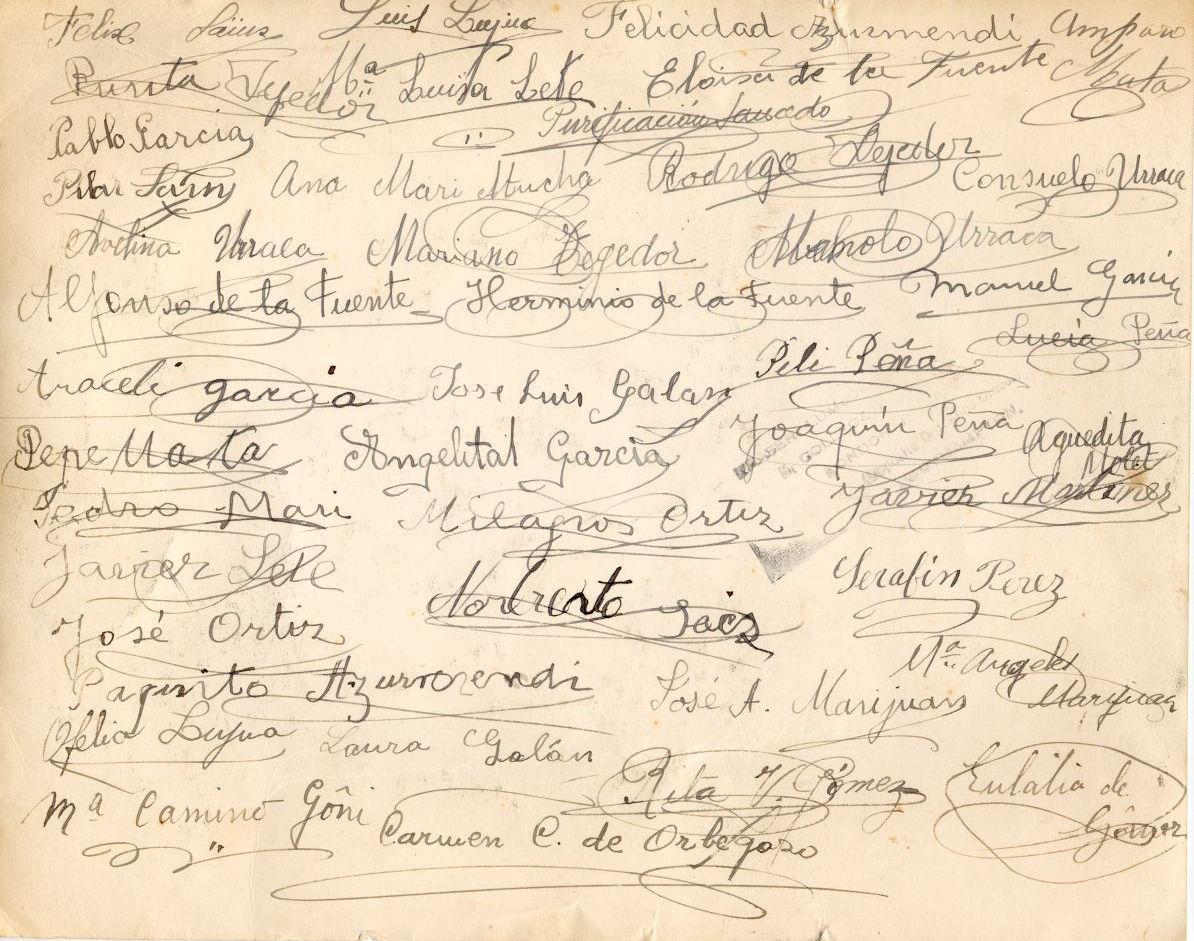 Felix Sáinz Luis Lujua Felicidad Azurmendi Amparo Mata
Purita Tejedor Mª Luisa Lete Eloisa de la Fuente
Pablo Garcia Purificación Saucedo
Pilar Sáin Ana Mari Mucha Rodrigo Tejedor Consuelo Urraca
Avelina Urraca Mariano Tegedor Manolo Urraca
Alfonso de la Fuente Herminio de la Fuente Manuel García
Lucía Peña
Araceli garcia Jose Luis Galan Pili Peña
Joaquín Peña Aguedita
Pepe Mata Angelital Garcia
Pedro Mari Milagros Ortiz Javier Martinez
Javier Lete Norberto Serafín Perez
José Ortiz
Paquito Azurmendi José A. Marijuan Mª Angeles Marijuan
Ofelia Lujua Laura Galán
Mª Camino Gôñi Rita V. Gómez Eulalia de Gómez
Carmen C. de Orbegozo